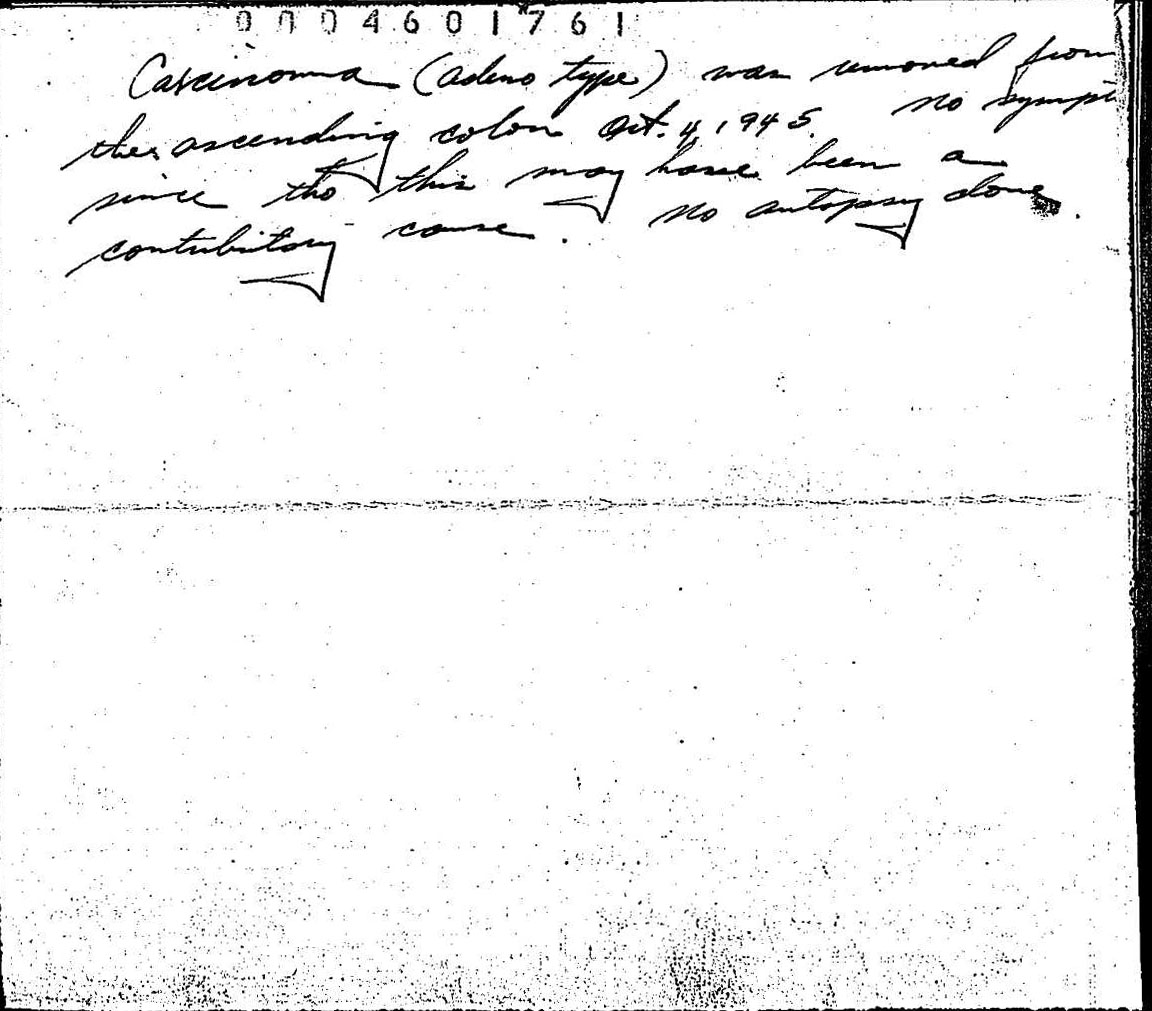 0004601761
Carcinoma (adeno type) was removed from
the ascending colon Oct. 4, 1945. no sympt
since tho this may have been a
contributory cause. no autopsy done.